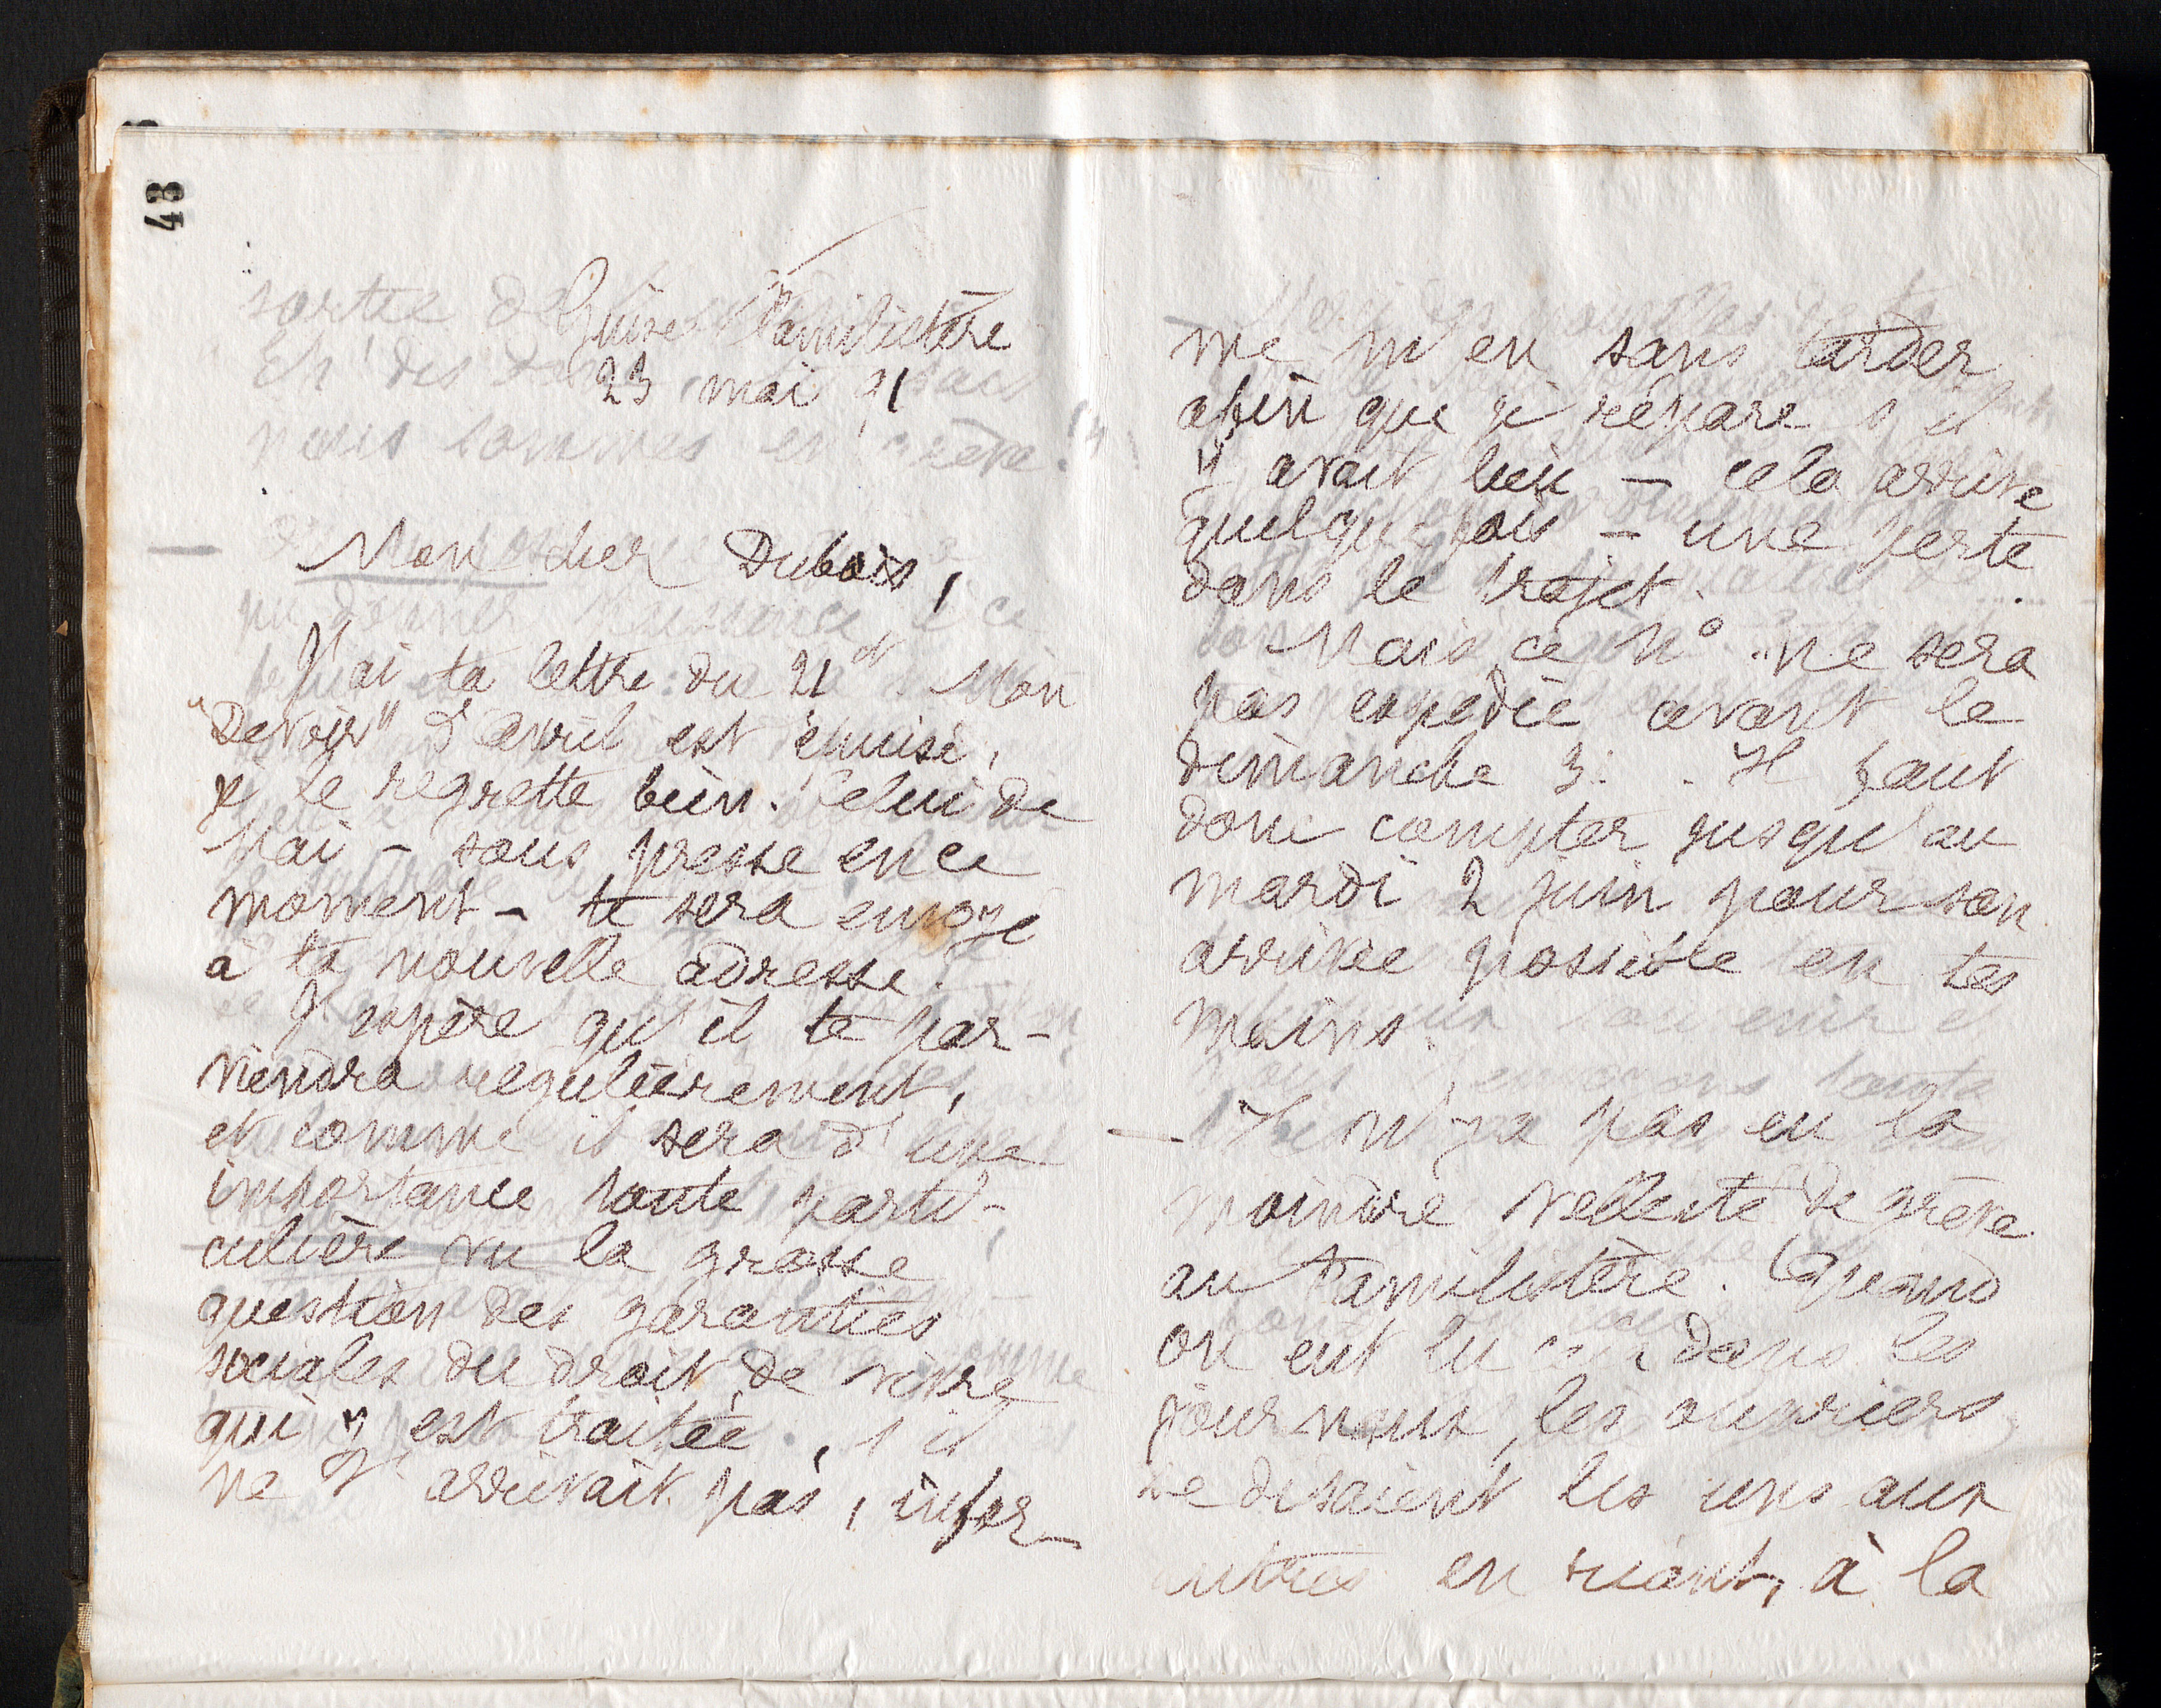 43
Guise Familistère
23 mai 91
Mon cher Dubois,
J'ai ta lettre du 21 ct. Mon
"Devoir" d'avril est épuisé,
je le regrette bien. Celui de
Mai - sous presse en ce
moment - te sera envoyé
à ta nouvelle adresse.
J'espère qu'il te par-
viendra régulièrement,
et comme il sera d'une
importance toute parti-
culière vu la grosse
question des garanties
sociales du droit de vivre
qui y est traitée, s'il
ne t'arrivait pas, infor-
me m'en sans tarder
afin que je répare s'il
y avait lieu - cela arrive
quelquefois - une perte
dans le trajet.
Mais ce No ne sera
pas expédié avant le
dimanche 31. Il faut
donc compter jusqu'au
mardi 2 juin pour son
arrivée possible en tes
mains.
Il n'y a pas eu la
moindre velléité de grève
au Familistère. Quand
on eut lu dans les
journaux, les ouvriers
se disaient les uns aux
autres en riant, à la